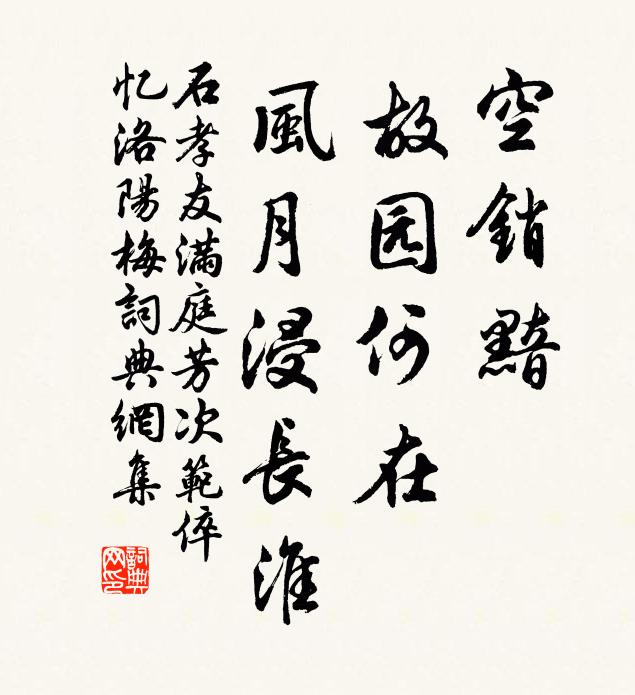 空銷黯
故园何在
風月浸長淮
石孝友滿庭芳次範倅
忆洛陽梅詞典網集
詞典网印